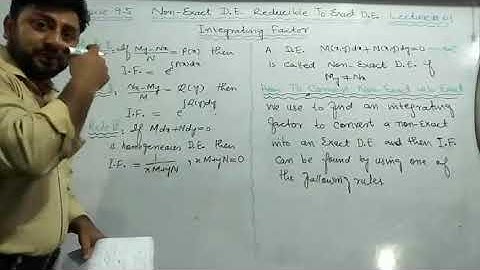 9.5 Non-Exact D.E. Reducible To Exact D.E. Lecture #
Integrating Factor
If My-Nx/N = P(x) then
I.F. = e^∫P(x)dx
Nx-My/M = Q(y) then
I.F. = e^∫Q(y)dy
Rule If Mdx+Ndy=0
is homogeneous D.E. then
I.F. = 1/xM+yN , xM+yN=0
A D.E. M(x,y)dx+N(x,y)dy=0
is called Non-Exact D.E. if
My≠Nx
How To Non-Exact into Exact
we use to find an integrating
factor to convert a non-Exact
into an Exact D.E and then I.F.
can be found by using one of
the following rules